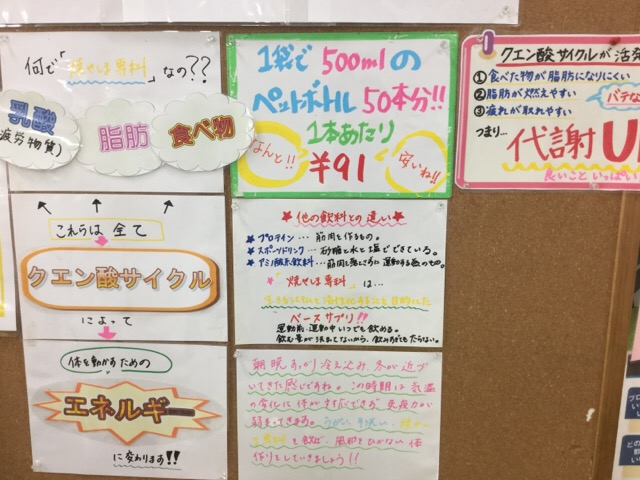 何で「焼やせま専科」なの??
乳酸
(疲労物質)
脂肪
食べ物
これらは全て
クエン酸サイクル
によって
体を動かすための
エネルギー
に変わります!!
1袋で 500mlの
ペットボトル 50本分!!
1本あたり
なんと!!
¥91
安いね!!
★他の飲料との違い★
★プロテイン… 筋肉を作るもの。
★スポーツドリンク… 砂糖と水と塩でできている。
★アミノ酸系飲料…
★「焼やせま専科」は…
ベースサプリ!!
運動前・運動中いつでも飲める。
飲む量が決まってないから、飲み過ぎてもだらない。
朝晩すっかり冷え込み、冬が近づ
いてきた感じですね。この時期は気温
の変化に体が対応できず、免疫力が
弱まってきます。うがい、手洗い、
専科を飲んで、風邪をひかない体
作りをしていきましょう!!
クエン酸サイクルが活発
①食べた物が脂肪になりにくい
②脂肪が燃えやすい
③疲れが取れやすい
バテな
つまり…
代謝U
良いこと いっぱい